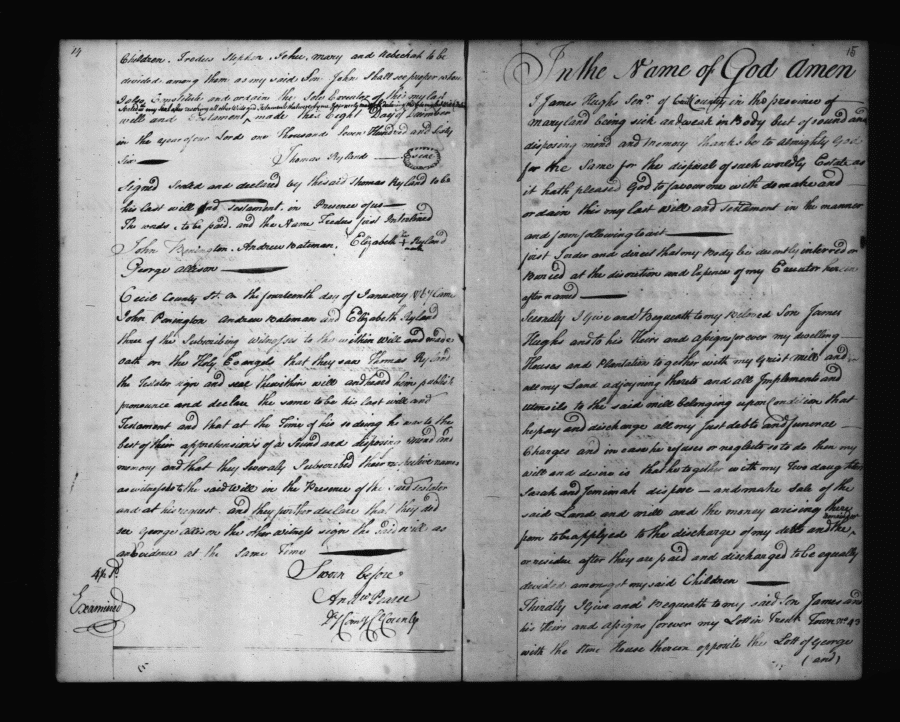 14
Children. Fredus Stephen, John, mary and Rebeckah to be
divided among them as my said Son John shall see proper when
I also Constitute and ordain the Sole Executor of this my last
will and Testament, made this Eight Day of
in the year of our Lord one Thousand Seven Hundred and Sixty
Six
Thomas Ryland
Seal
Signed Sealed and declared by the said Thomas Ryland to be
his last will and Testament in Presence of us
The words, to be paid, and the Name Fredus first Interlined
John Penington. Andrew Bateman. Elizabeth Ryland
George Allison
Cecil County Ss. On the fourteenth day of January 1767 Came
John Penington Andrew Bateman and Elizabeth Ryland
three of the Subscribing Witnesses to the within Will and made
Oath on the Holy Evangels that they saw Thomas Ryland
the Testator sign and seal the within will and heard him publish
pronounce and declare the same to be his last will and
Testament and that at the Time of his so doing he was to the
best of their apprehensions of a Sound and disposing mind and
memory and that they Severally Subscribed their respective names
as witnesses to the said Will in the Presence of the Said testator
and at his request. and they further declare that they did
see George Allison the other witness sign the said Will as
an evidence at the Same Time
Examined
Sworn before
Andw Pearce
Dy Comy Cl County
15
In the Name of God Amen
I James Hugh Senr. of Cecil County in the province of
Maryland being sick and weak in Body but of sound and
disposing mind and Memory thanks be to almighty God
for the Same for the disposal of such worldly Estate as
it hath pleased God to favour me with do make and
ordain this my last Will and Testament in the manner
and form following to wit
first I order and direct that my Body be decently interred or
Buried at the discretion and Expence of my Executor herein
after named
Secondly I Give and Bequeath to my Beloved Son James
Hughs and to his Heirs and assigns for ever my dwelling
Houses and Plantation together with my Grist Mill and
all my Land adjoyning thereto and all Implements and
utensils to the said mill belonging upon Condition that
he pay and discharge all my just debts and funeral
Charges and in case he refuses or neglects so to do then my
will and desire is that he together with my Two daughters
Sarah and Jemimah dispose and make Sale of the
said Land and mill and the money arising there
from to be applyed to the discharge of my debts and the
or residue after they are paid and discharged to be equally
divided amongst my said Children
Thirdly I give and Bequeath to my said Son James and
his Heirs and assigns forever my Lott in Town No. 43
with the Stone House thereon opposite the Lott of George
(and)